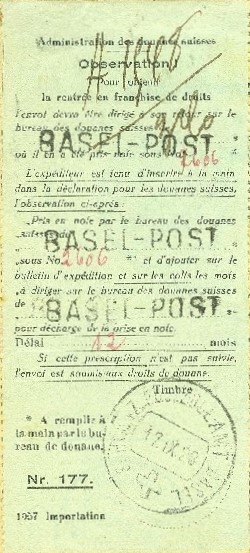 Administration des douanes suisses
Observation!
Pour obtenir
la rentrée en franchise de droits
l'envoi devra être dirigé à son retour sur le
bureau des douanes suisses
BASEL-POST
où il en a été pris note sous No. 2606
L'expéditeur est tenu d'inscrire à la main
dans la déclaration pour les douanes suisses,
l'observation ci-après:
„Pris en note par le bureau des douanes
suisses de
BASEL-POST
sous No. 2606 " et d'ajouter sur le
bulletin d'expédition et sur les colis les mots
„à diriger sur le bureau des douanes suisses
de BASEL-POST
pour décharge de la prise en note.
Délai 12 mois
Si cette prescription n'est pas suivie,
l'envoi est soumis aux droits de douane.
Timbre
* A remplir à
la main par le bu-
reau de douane.
Nr. 177.
1957 Importation